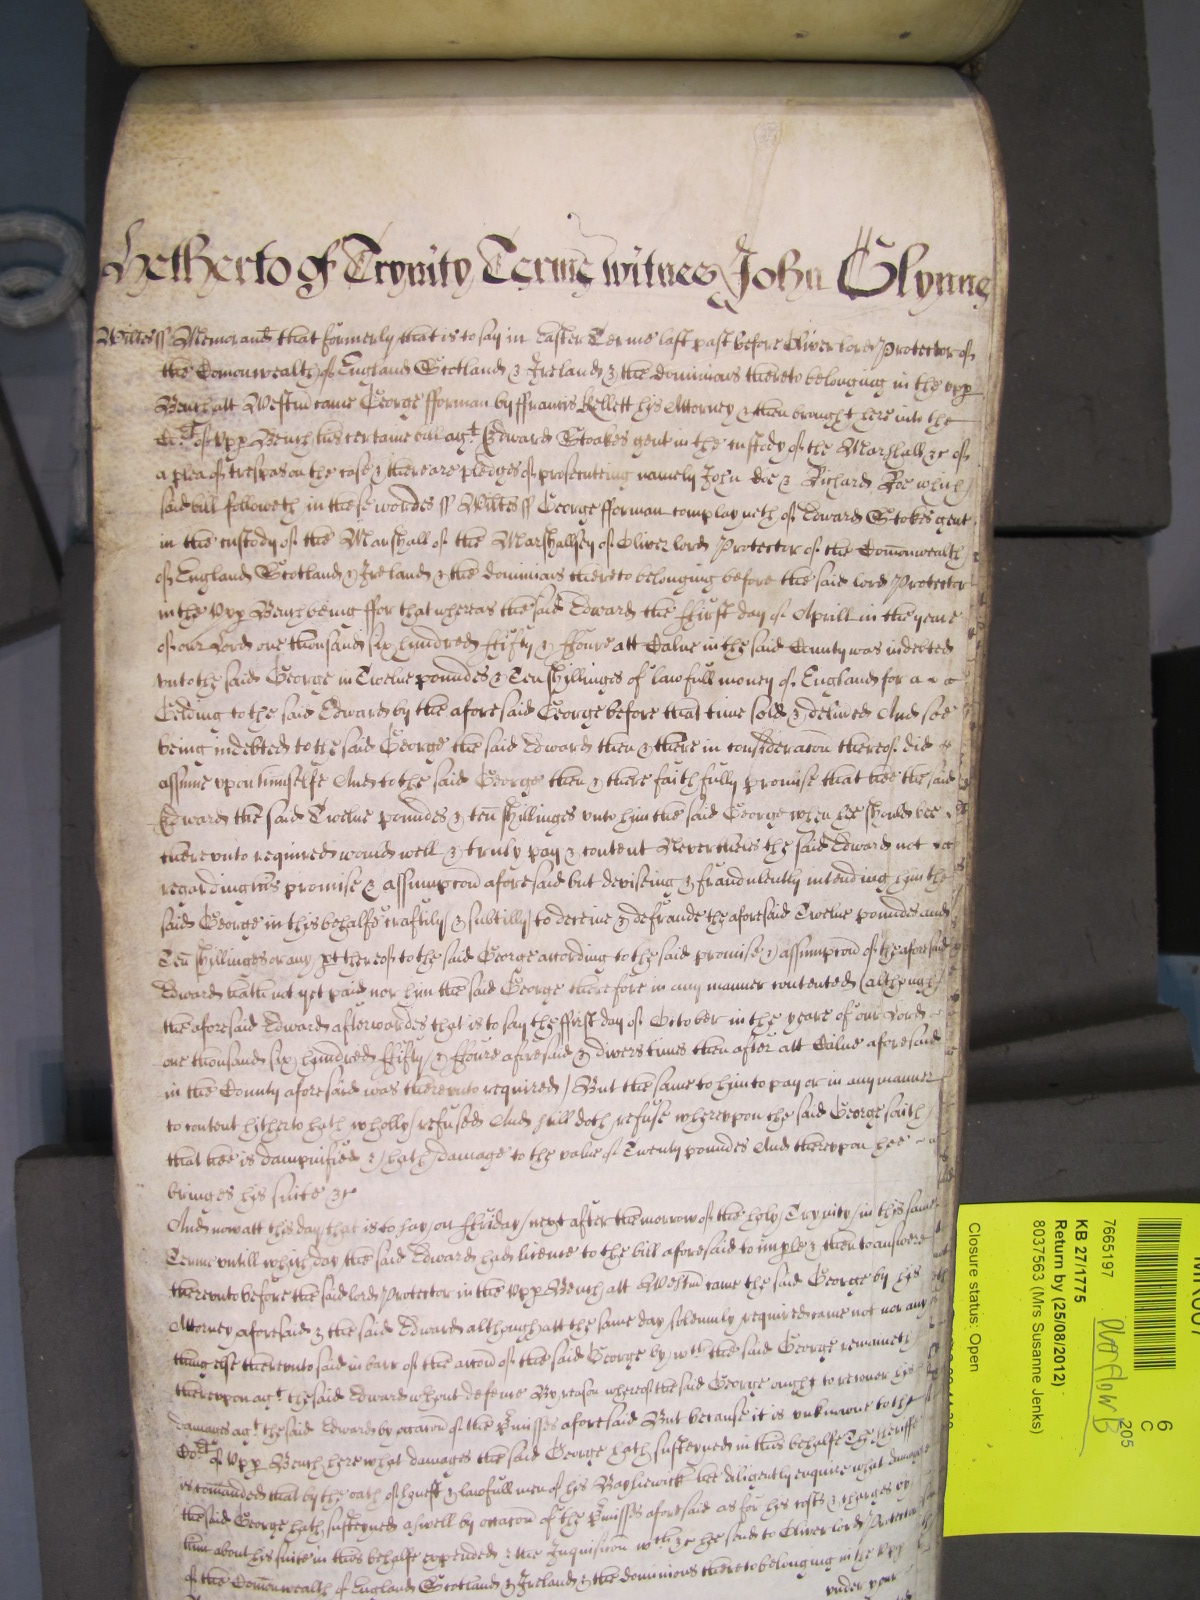 Hetherto of Trynity Terme witnes John Glynne
Wiltes ss Memorand that formerly that is to say in Easter Terme last past before Oliver lord Protector of
the Comonwealth of England Scotland & Ireland & the dominions thereto belonging in the upp
Bench att Westm came George fforman by ffrancis Kellett his Attorney & then brought here into the
Co:rt of Upp Bench his certaine bill agt Edward Stoakes gent in the custody of the Marshall &c of
a plea of trespas on the case & there are pledges of prosecutting namely John Doe & Richard Roe which
said bill followeth in these wordes ss Wiltes ss George fforman complayneth of Edward Stokes gent
in the custody of the Marshall of the Marshallsey of Oliver lord Protector of the Comonwealth
of England Scotland & Ireland & the dominions thereto belonging before the said lord Protector
in the Upp Bench being ffor that whereas the said Edward the ffirst day of Aprill in the yeare
of our Lord one thousand six hundred ffifty & ffoure att Calne in the said County was indebted
unto the said George in Twelve poundes & Ten shillinges of lawfull money of England for a
Gelding to the said Edward by the aforesaid George before that time sold & delivred And soe
being indebted to the said George the said Edward then & there in consideracon thereof did
assume upon himselfe And to the said George then & there faithfully promise that hee the said
Edward the said Twelve poundes & ten shillinges unto him the said George when hee should bee
thereunto required would well & truly pay & content Neverthelés the said Edward not
regarding his promise & assumpcon aforesaid but deviseing & fraudulently intending him the
said George in this behalfe craftily & subtilly to deceive & defraude the aforesaid Twelve poundes and
Ten shillinges or any pt thereof to the said George according to the said promise & assumpcon of the aforesaid
Edward hath not yet paid nor him the said George therefore in any manner contented (although)
the aforesaid Edward afterwardes that is to say the ffirst day of October in the yeare of our Lord
one thousand six hundred ffifty & ffoure aforesaid & divers times then after att Calne aforesaid
in the County aforesaid was thereunto required) But the same to him to pay or in any manner
to content hitherto hath wholly refused And still doth refuse whereupon the said George saith
that hee is dampnified & hath damage to the value of Twenty poundes And thereupon hee
bringes his suite &c
And now att this day that is to say on ffriday next after the morrow of the holy Trynity in this same
Terme untill which day the said Edward had licence to the bill aforesaid to imple & then to answere
thereunto before the said lord Protector in the Upp Bench att Westm came the said George by his
Attorney aforesaid & the said Edward although att the same day solemnly required came not nor any
thing else thereunto said in barr of the accon of the said George by wch the said George remaineth
thereupon agt the said Edward wthout defence By reason whereof the said George ought to recover his
damages agt the said Edward by occacon of the Pmisses aforesaid But because it is unknowne to the
Co:rt of Upp Bench here what damages the said George hath susteyned in this behalfe The sheriffe
is comanded that by the oath of honest & lawfull men of his Bayliewick hee diligently enquire what damages
the said George hath susteyned aswell by occacon of the Pmisses aforesaid as for his costs & charges by
him about his suite in this behalfe expended & the Inquisicon wch &c hee send to Oliver lord Protector
of the Comonwealth of England Scotland & Ireland & the dominions thereto belonging in the Upp
under your
7665197
KB 27/1775
Return by (25/08/2012)
8037563 (Mrs Susanne Jenks)
Closure status: Open
Overflow B
6
C
205